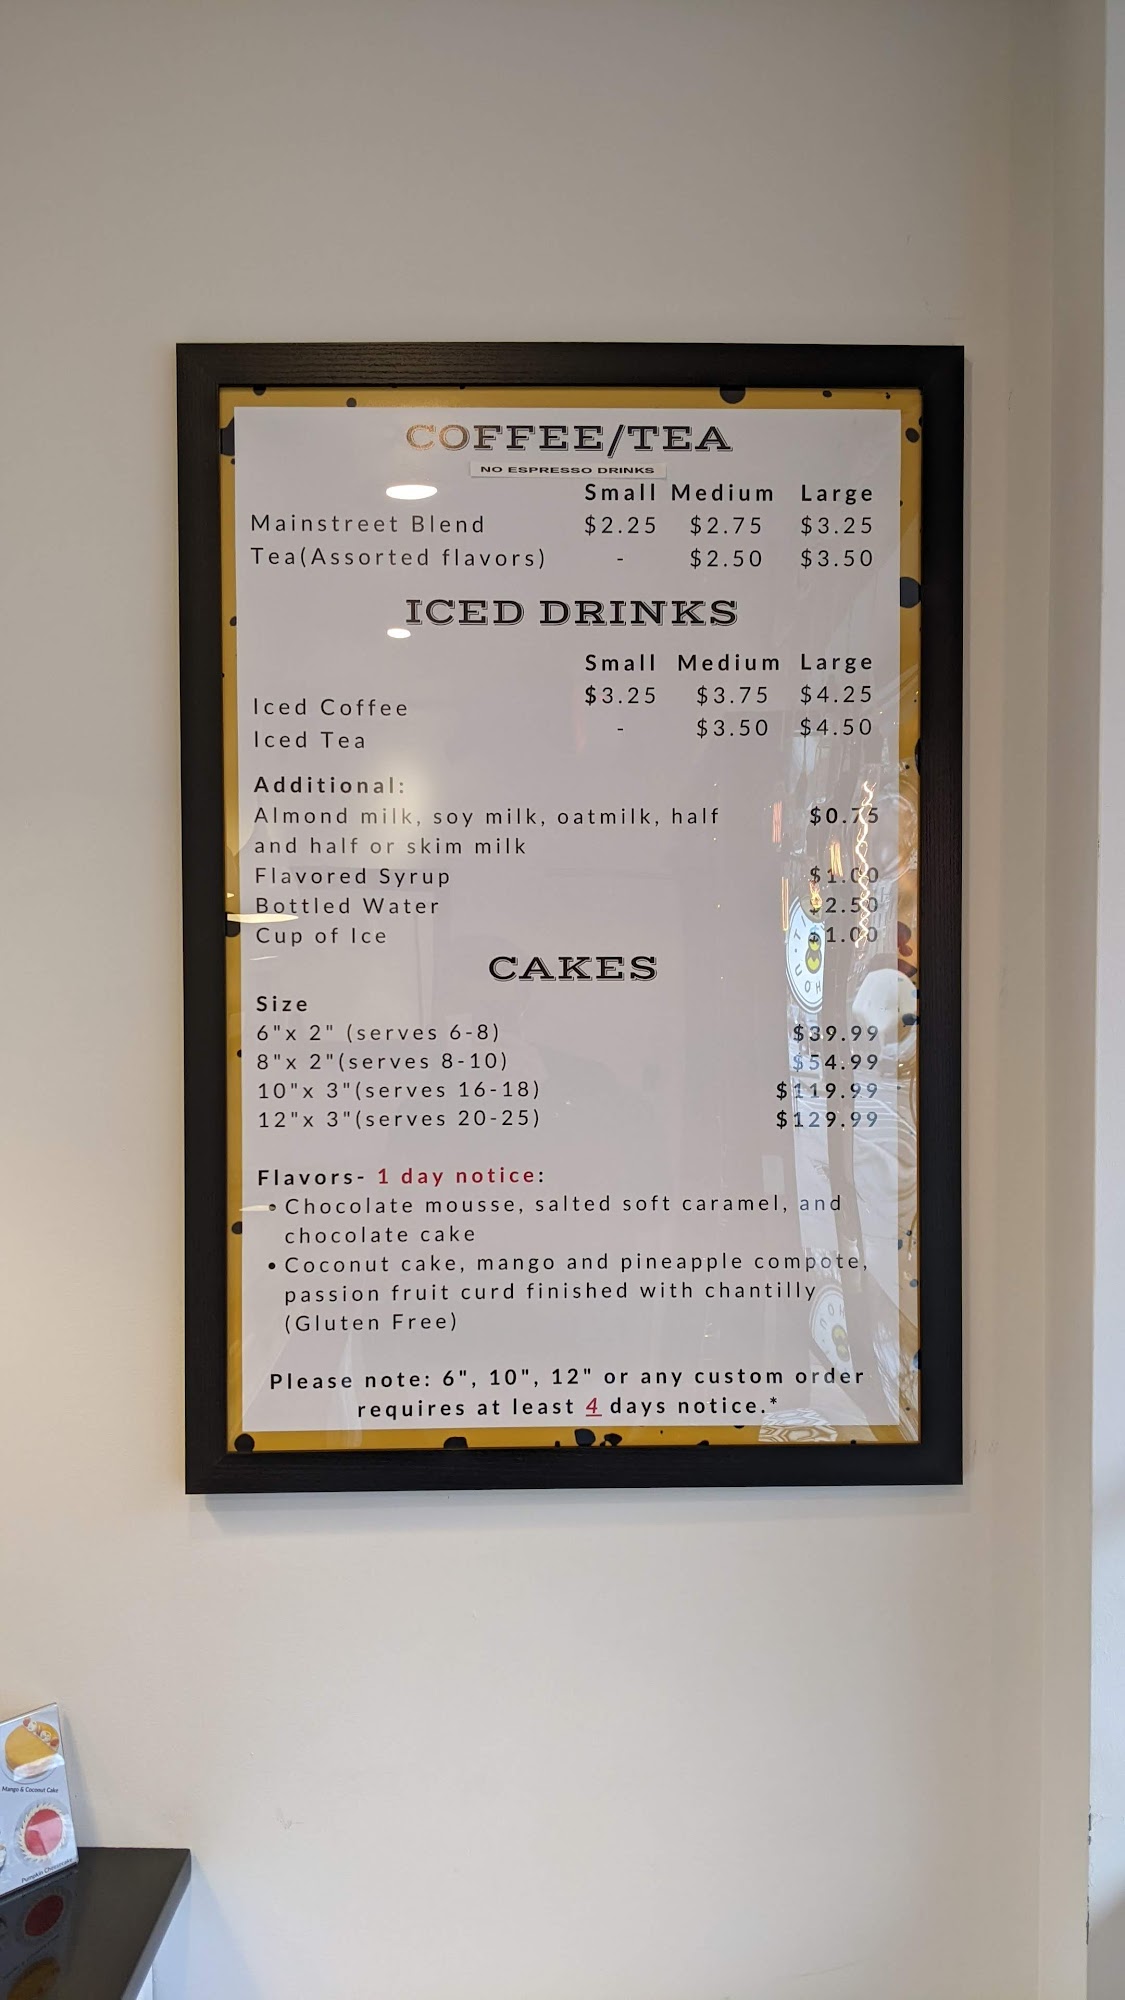 COFFEE/TEA
NO ESPRESSO DRINKS
Small Medium Large
Mainstreet Blend $2.25 $2.75 $3.25
Tea(Assorted flavors) - $2.50 $3.50
ICED DRINKS
Small Medium Large
Iced Coffee $3.25 $3.75 $4.25
Iced Tea - $3.50 $4.50
Additional:
Almond milk, soy milk, oatmilk, half $0.75
and half or skim milk
Flavored Syrup $1.00
Bottled Water $2.50
Cup of Ice $1.00
CAKES
Size
6"x 2" (serves 6-8) $39.99
8"x 2"(serves 8-10) $54.99
10"x 3"(serves 16-18) $119.99
12"x 3"(serves 20-25) $129.99
Flavors- 1 day notice:
• Chocolate mousse, salted soft caramel, and
chocolate cake
• Coconut cake, mango and pineapple compote,
passion fruit curd finished with chantilly
(Gluten Free)
Please note: 6", 10", 12" or any custom order
requires at least 4 days notice.*
Mango & Coconut Cake
Pumpkin Cheesecake